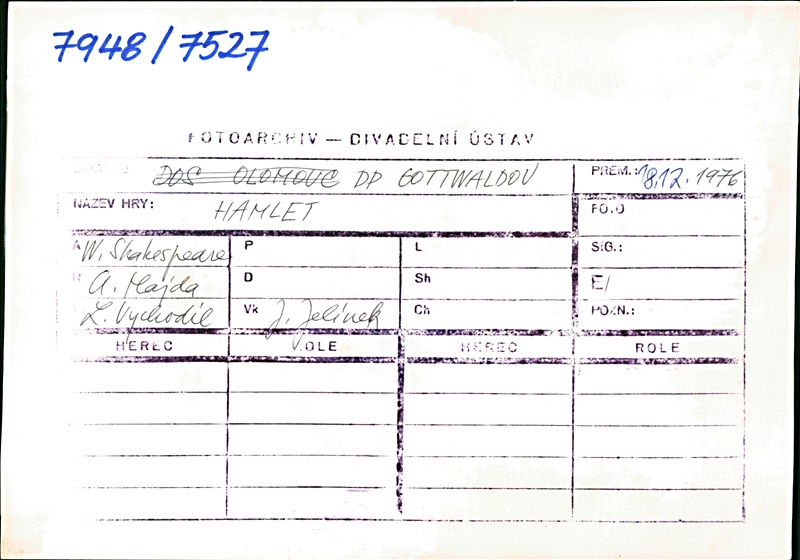 7948/7527
FOTOARCHIV — DIVADELNÍ ÚSTAV
DOS OLOMOUC DP GOTTWALDOV PREM.: 18.12.1976
NÁZEV HRY: HAMLET FOTO
A W. Shakespeare P L SIG.:
R A. Hajda D Sh E/
L. Vychodil Vk J. Jelínek Ch POZN.:
HEREC ROLE HEREC ROLE